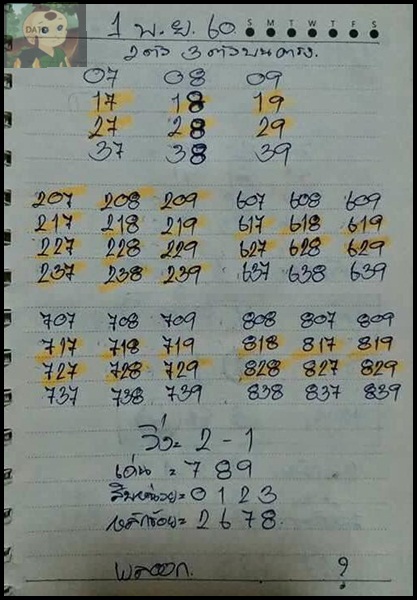 DATO
1 พ.ย. 60 S M T W T F S
2 ตัว 3 ตัวบนตรง.
07 08 09
17 18 19
27 28 29
37 38 39
207 208 209 607 608 609
217 218 219 617 618 619
227 228 229 627 628 629
237 238 239 637 638 639
707 708 709 808 807 809
717 718 719 818 817 819
727 728 729 828 827 829
737 738 739 838 837 839
วิ่ง = 2 - 1
เด่น = 7 8 9
สิบหน่วย = 0 1 2 3
หลักร้อย = 2 6 7 8.
ผลออก. ?